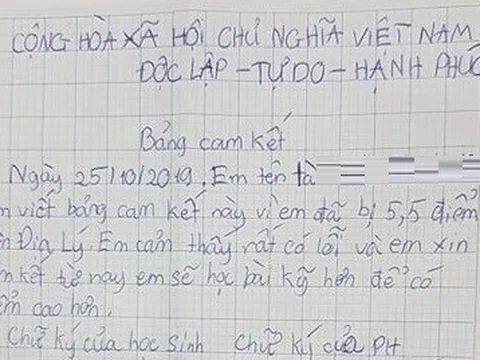 CỘNG HÒA XÃ HỘI CHỦ NGHĨA VIỆT NAM
ĐỘC LẬP - TỰ DO - HẠNH PHÚC
Bảng cam kết
Ngày 25/10/2019. Em tên là
viết bảng cam kết này vì em đã bị 5,5 điểm
Địa Lý. Em cảm thấy rất có lỗi và em xin
kết từ nay em sẽ học bài kỹ hơn để có
cao hơn.
Chữ ký của học sinh Chữ ký của PH